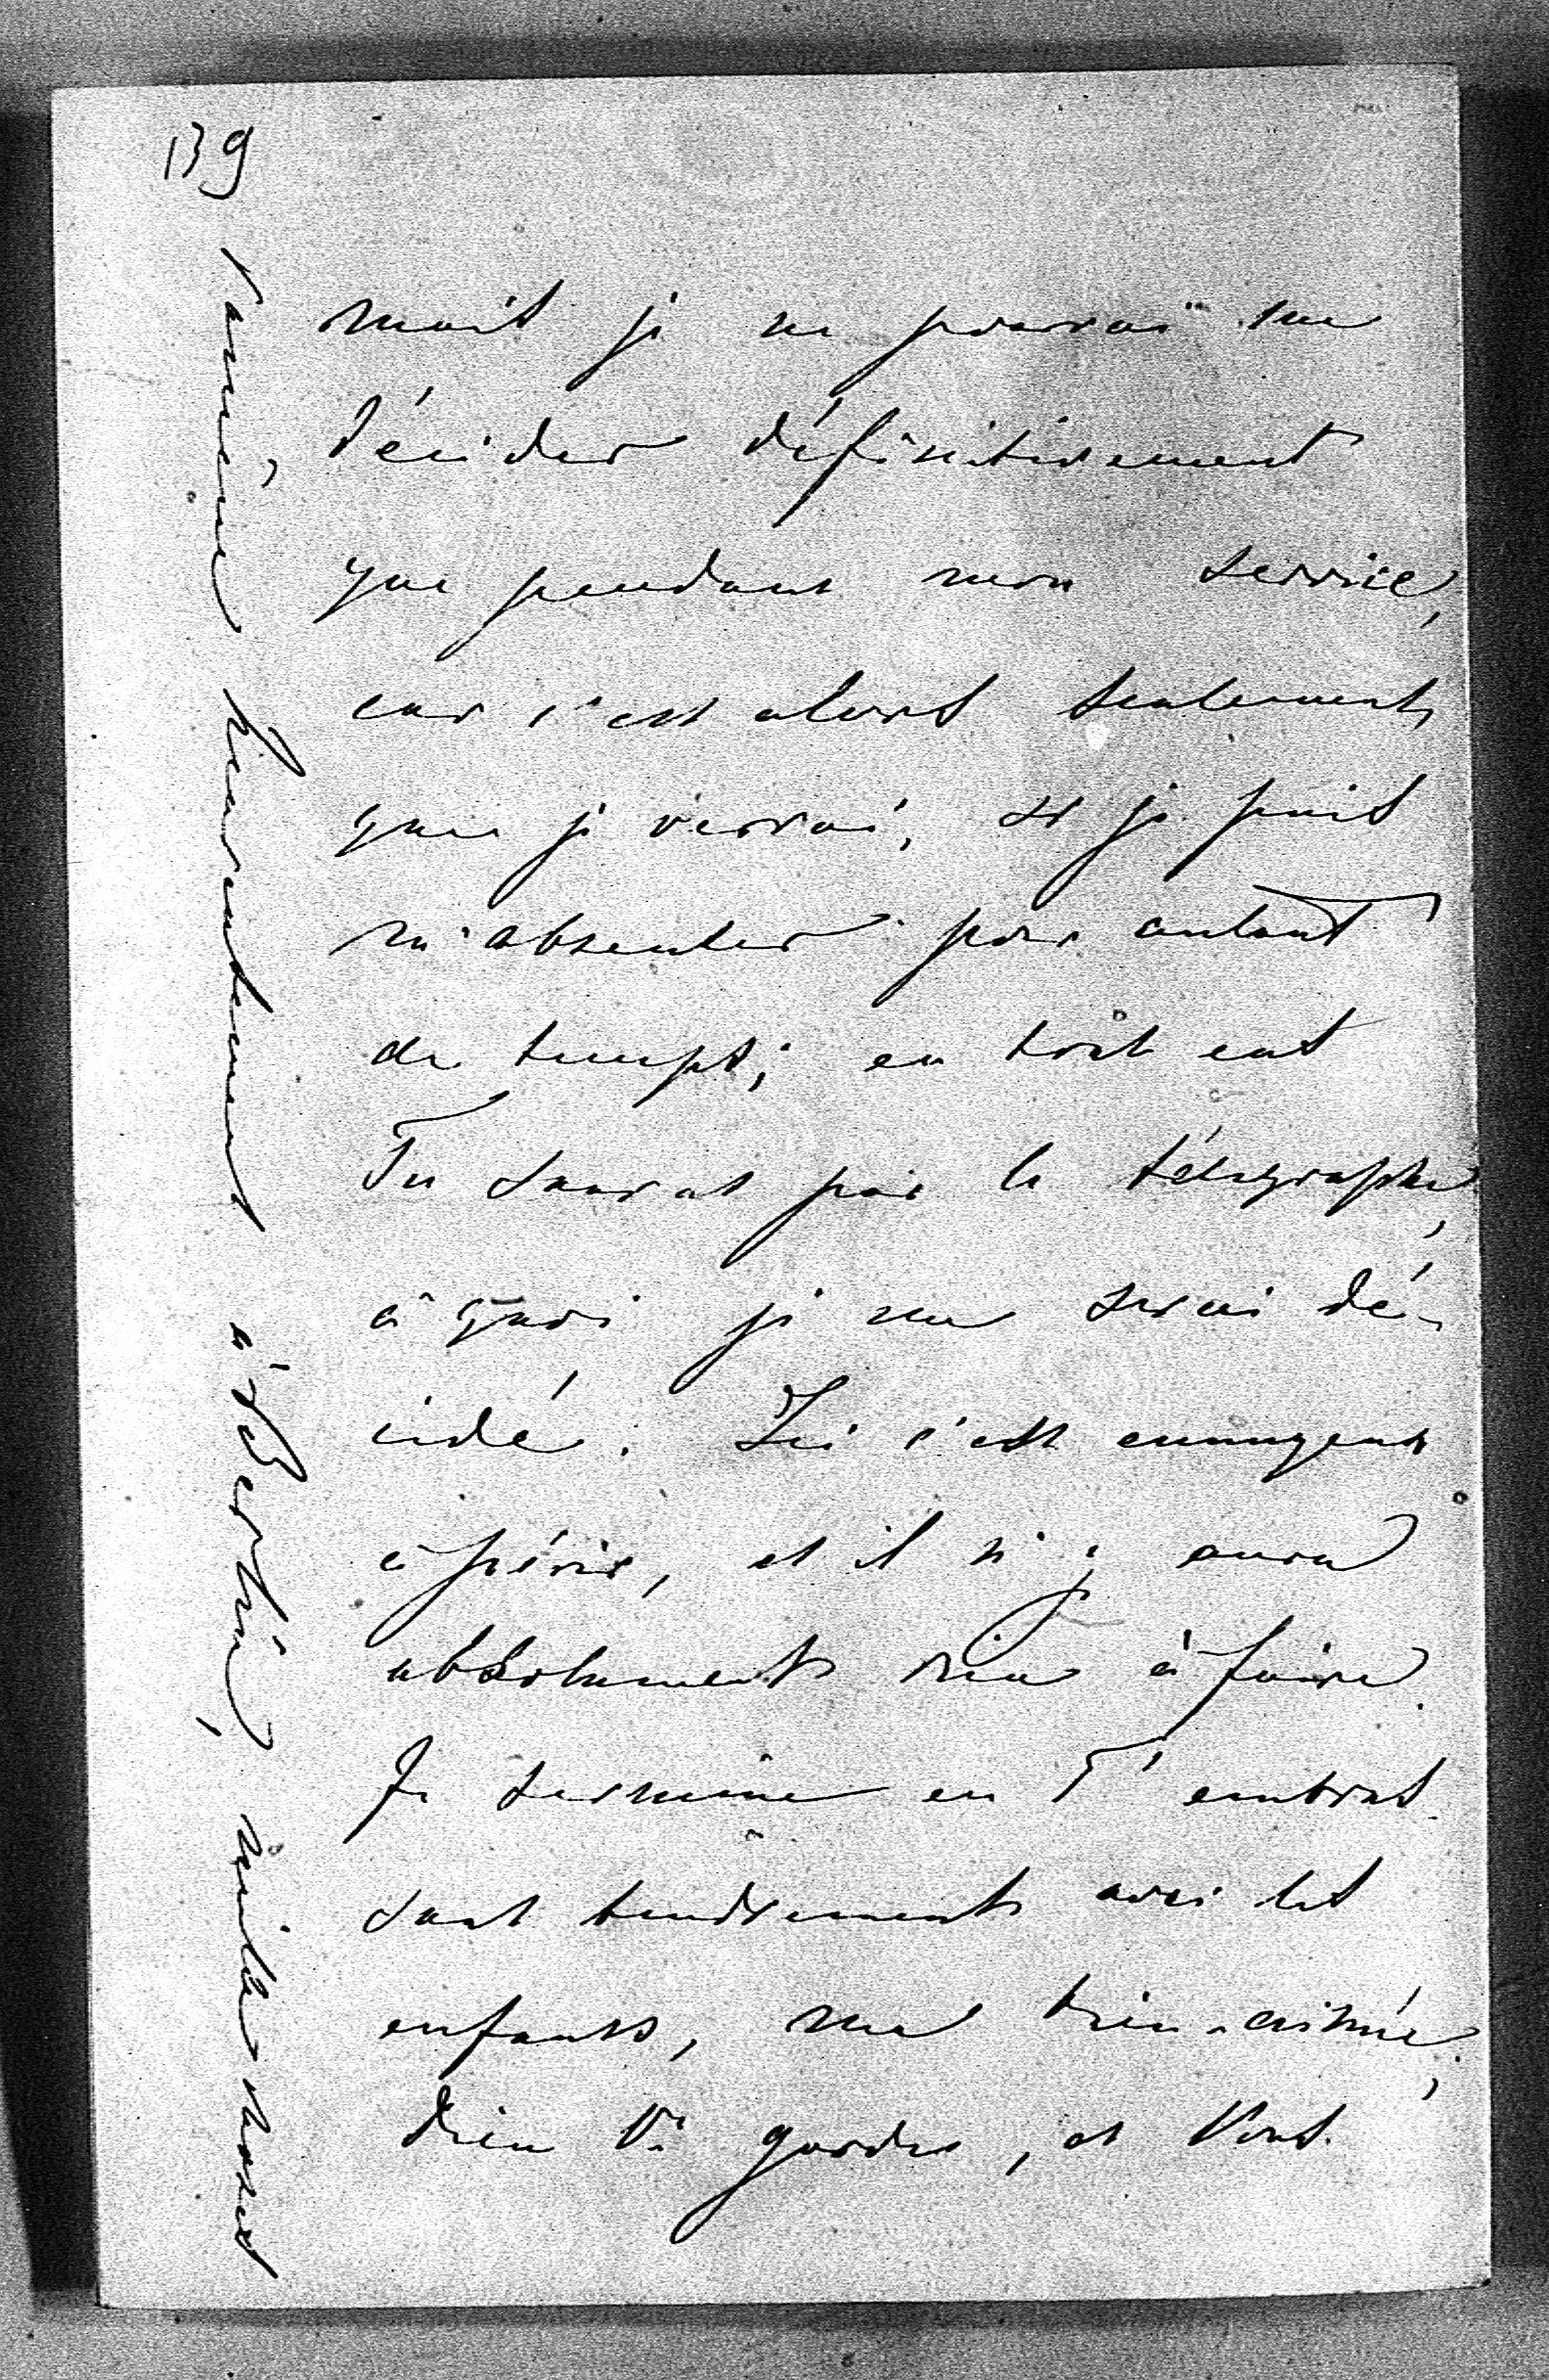 139
mais je ne pourrai me
décider définitivement
que pendant mon service,
car c'est alors seulement,
que je verrai, si je puis
m'absenter pour autant
de temps; en tout cas
Tu sauras par le télégraphe,
à quoi je me serai dé-
cidé. Ici c'est ennuyeux
à périr, et il n'y aura
absolument rien à faire.
Je termine en T'embras-
sant tendrement avec les
enfants, ma bien-aimée,
Dieu Te garde, et Vous
ramène heureusement à Berlin, mille choses